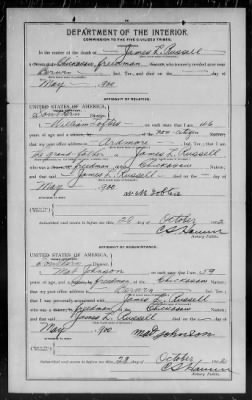 DEPARTMENT OF THE INTERIOR,
COMMISSION TO THE FIVE CIVILIZED TRIBES.
In the matter of the death of James L. Russell
a Chickasaw freedman who formerly resided at or near
Berwyn Ind. Ter., and died on the — day of
May, 1900
AFFIDAVIT OF RELATIVE.
UNITED STATES OF AMERICA,
Southern
I, William on oath state that I am 46
years of age and a non citizen
that my post office address is Ardmore, Ind. Ter.; that I am
the grand father of James L. Russell
who was a freedman Chickasaw
and that said James L. Russell died on the — day of
May, 1900
Subscribed and sworn to before me this 28 October
Notary Public.
AFFIDAVIT OF ACQUAINTANCE.
UNITED STATES OF AMERICA,
Southern District.
I, Mat Johnson, on oath state that I am 59
years of age, and a freedman of the Chickasaw
that my post office address is Berwyn, Ind. Ter.; that
I was personally acquainted with James L. Russell
who was a freedman Chickasaw
and that said James L. Russell died on the — day of
May, 1900
Mat Johnson
Subscribed and sworn to before me this 28 October
Notary Public.